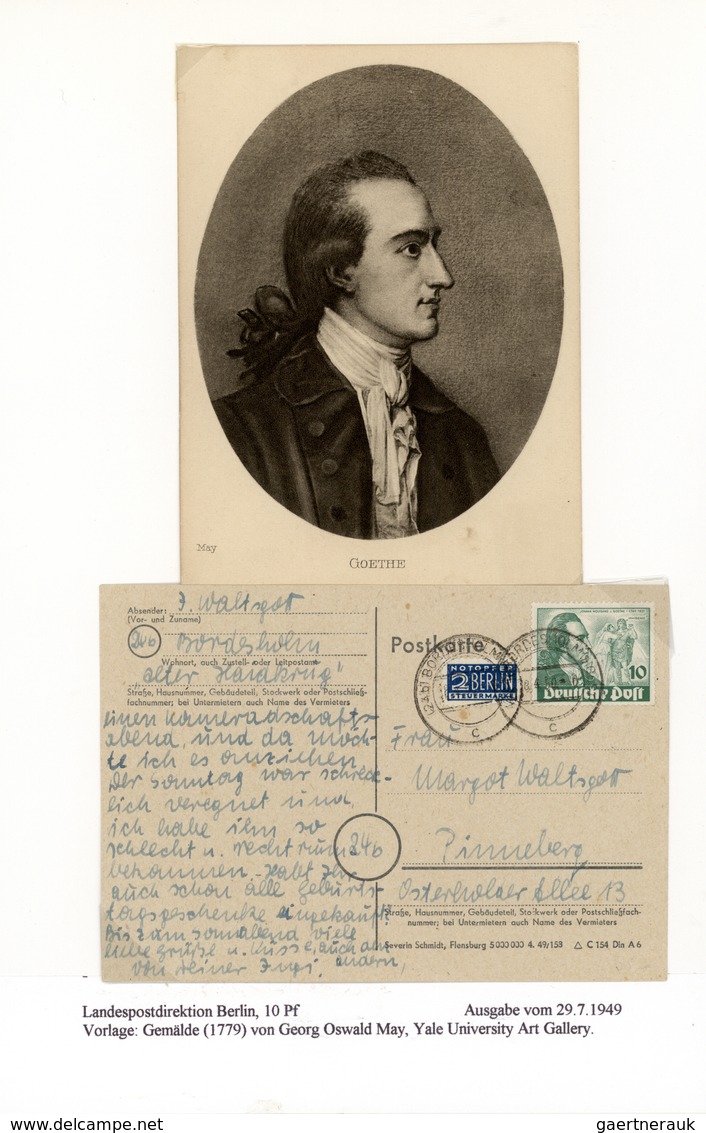 May
GOETHE
Absender: I. Waltsgott
(Vor- und Zuname)
24b Bordesholm
Wohnort, auch Zustell- oder Leitpostamt
"alter Haidkrug"
Straße, Hausnummer, Gebäudeteil, Stockwerk oder Postschließ-
fachnummer; bei Untermietern auch Name des Vermieters
einen Kameradschafts-
abend, und da möch-
te ich es anziehen
Der Sonntag war schreck-
lich veregnet und
ich habe ihn so
schlecht u. recht rum
bekommen. Habt Ihr
auch schon alle Geburts-
tagsgeschenke eingekauft.
Bis zum Sonnabend viele
liebe Grüße u. Küsse, auch an
von Deiner andern,
Postkarte
(24b) BORDESHOLM
c
NOTOPFER
2 BERLIN
STEUERMARKE
BORDESHOLM
c
10
Deutsche Post
Frau
Margot Waltsgott
24b
Pinneberg
Osterholder Allee 13
Straße, Hausnummer, Gebäudeteil, Stockwerk oder Postschließfach-
nummer; bei Untermietern auch Name des Vermieters
Severin Schmidt, Flensburg 5 000 000 4. 49/153 △ C 154 Din A 6
Landespostdirektion Berlin, 10 Pf Ausgabe vom 29.7.1949
Vorlage: Gemälde (1779) von Georg Oswald May, Yale University Art Gallery.
delcampe.net
gaertnerauk